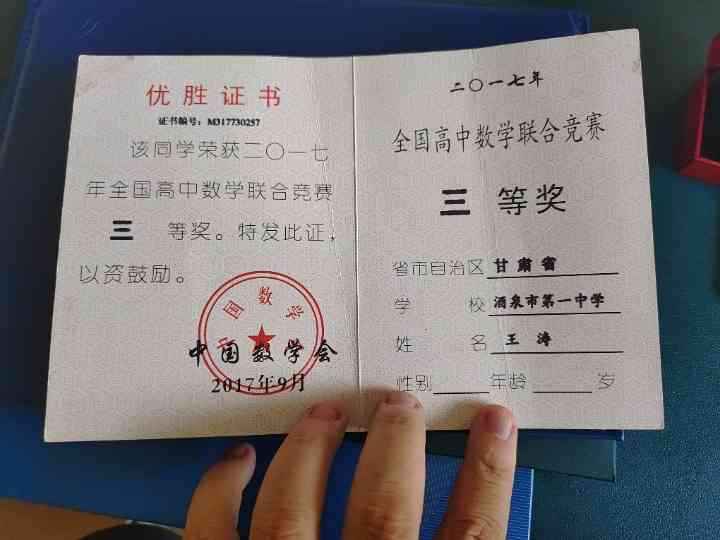 优胜证书
证书编号：M317730257
该同学荣获二〇一七
年全国高中数学联合竞赛
三 等奖。特发此证，
以资鼓励。
中国数学
中国数学会
2017年9月
二〇一七年
全国高中数学联合竞赛
三 等奖
省市自治区 甘肃省
学 校 酒泉市第一中学
姓 名 王 涛
性别 年龄 岁